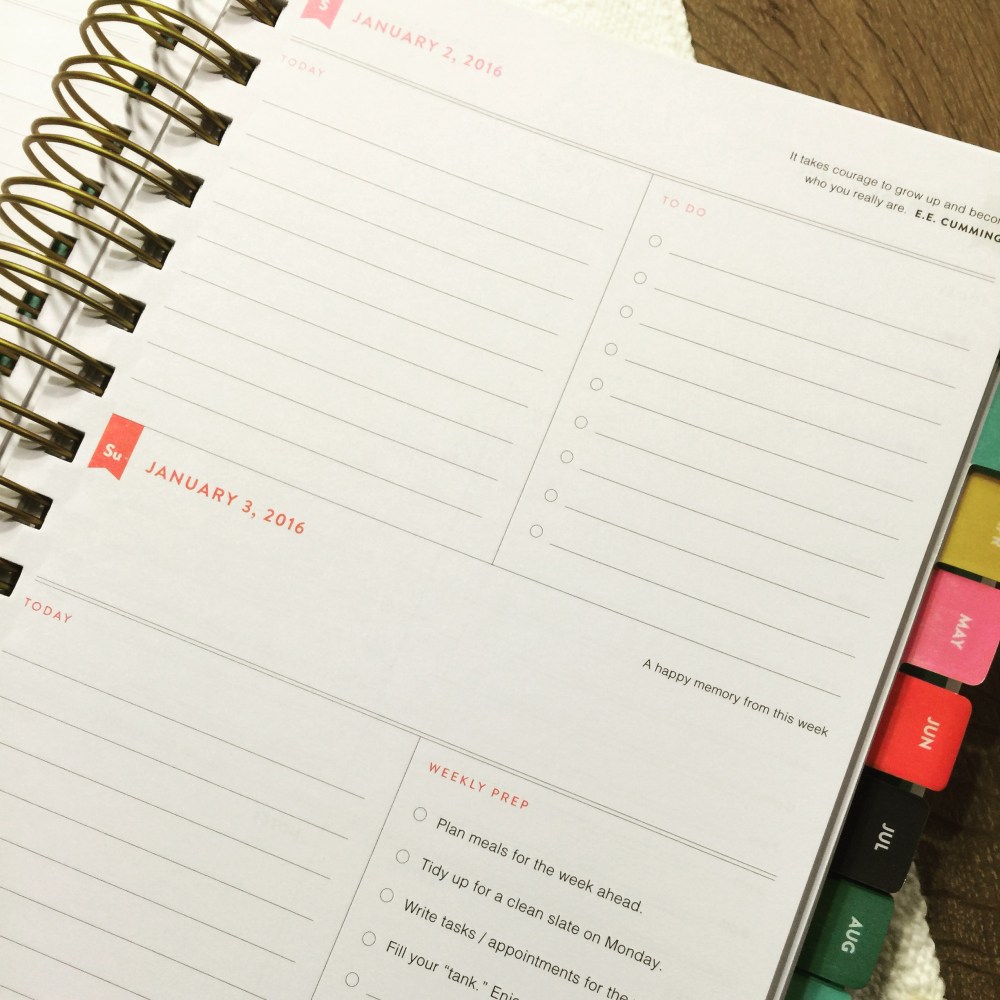 S
JANUARY 2, 2016
TODAY
It takes courage to grow up and
who you really are. E.E.
TO DO
Su
JANUARY 3, 2016
TODAY
A happy memory from this week
WEEKLY PREP
Plan meals for the week ahead.
Tidy up for a clean slate on Monday.
Write tasks / appointments for the
Fill your "tank."
MAY
JUN
JUL
AUG